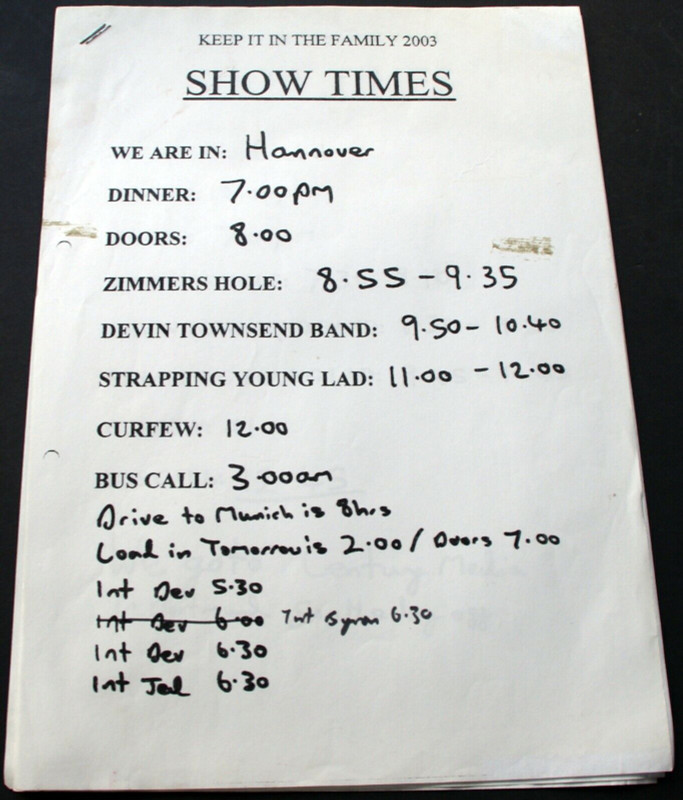 KEEP IT IN THE FAMILY 2003
SHOW TIMES
WE ARE IN: Hannover
DINNER: 7.00pm
DOORS: 8.00
ZIMMERS HOLE: 8.55 - 9.35
DEVIN TOWNSEND BAND: 9.50 - 10.40
STRAPPING YOUNG LAD: 11.00 - 12.00
CURFEW: 12.00
BUS CALL: 3.00am
Drive to Munich is 8hrs
Load in Tomorrow is 2.00 / Doors 7.00
Int Dev 5.30
Int Dev 6.00 Int Byron 6.30
Int Dev 6.30
Int Jed 6.30